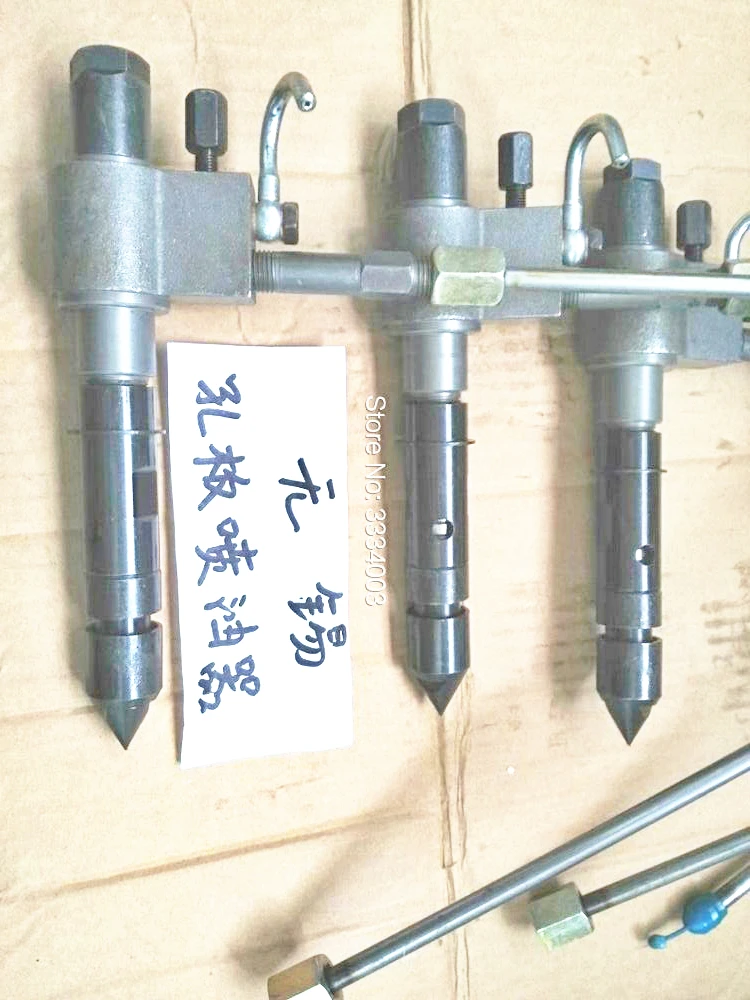 无锡
孔板喷油器
Store No: 3334003